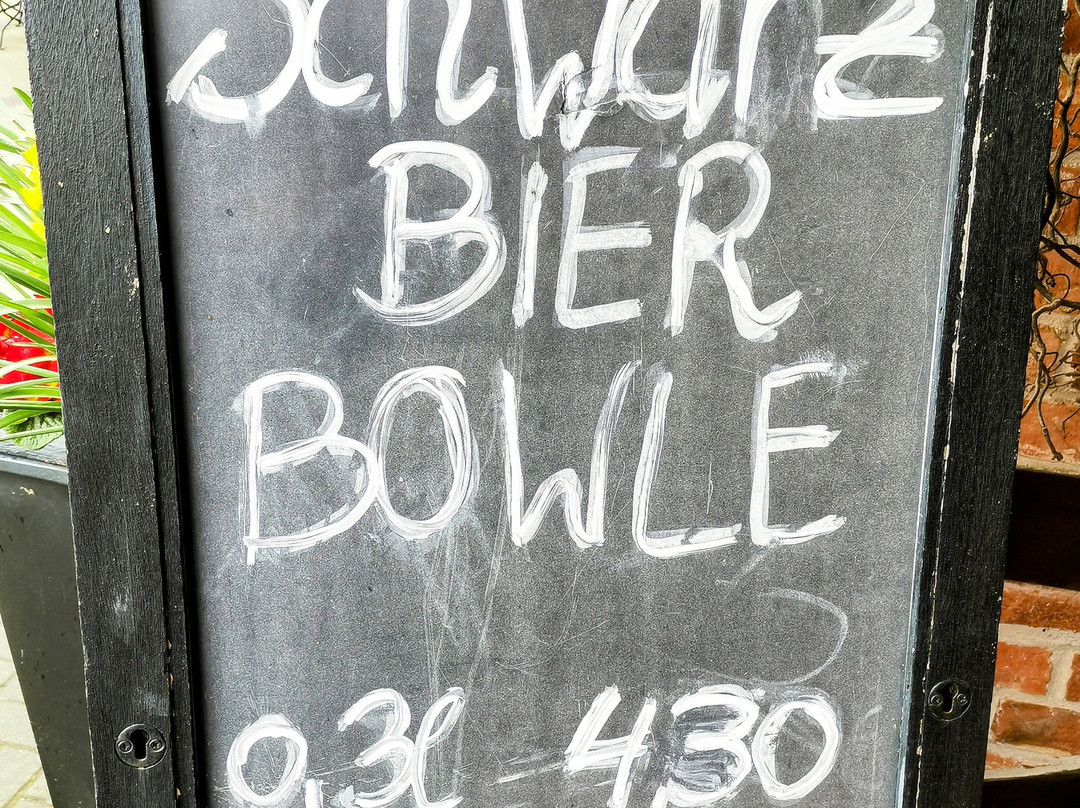 Schwarz
BIER
BOWLE
0,3l - 4,30